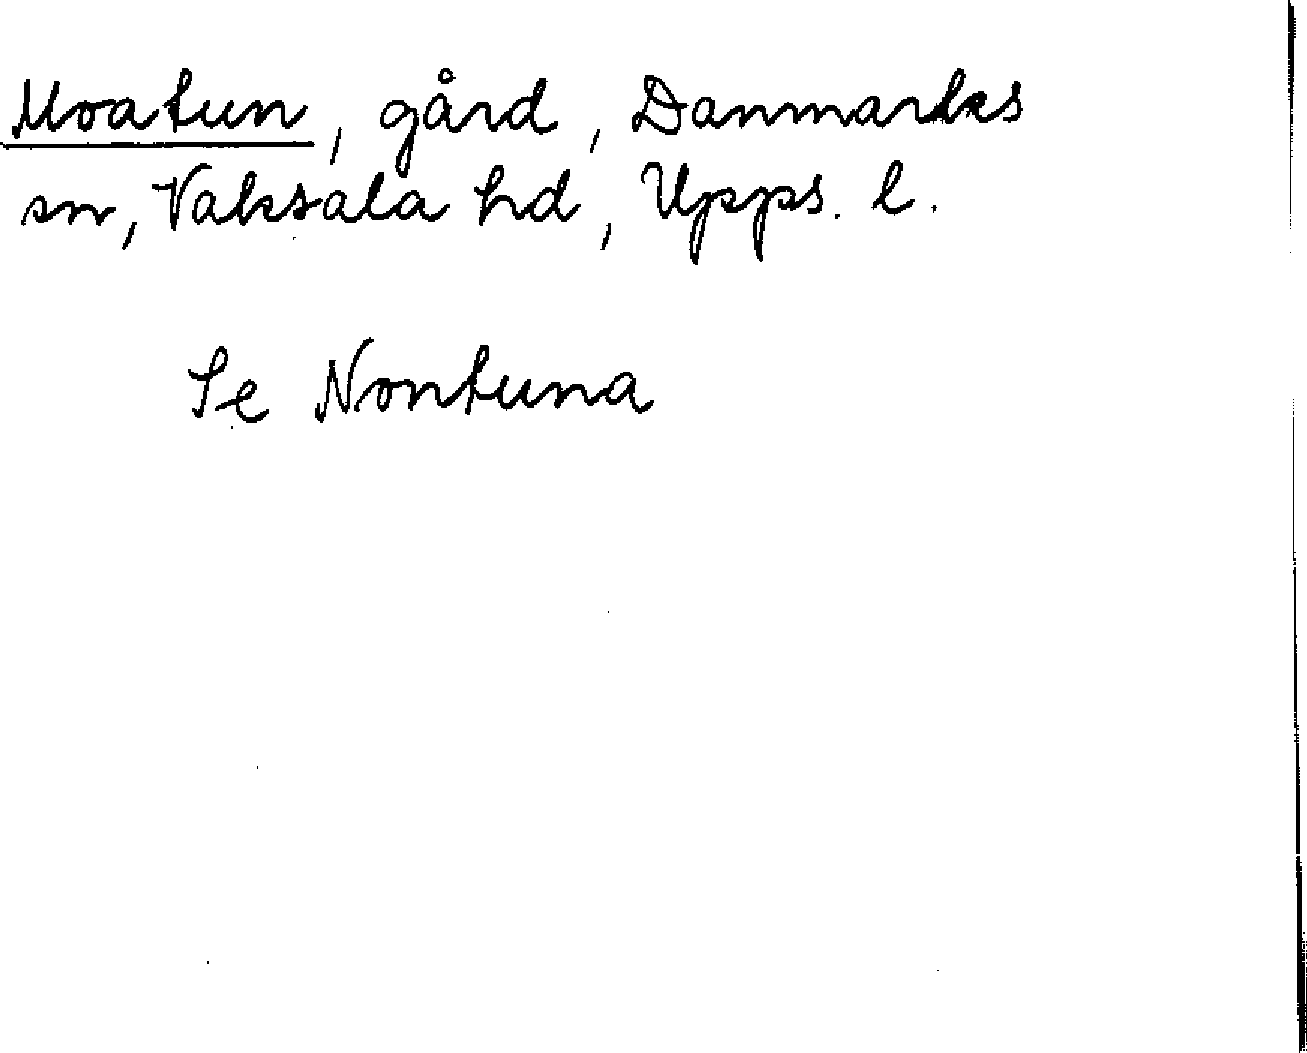 Moatun, gård, Danmarks
sn, Vaksala hd, Upps. l.
Se Nontuna